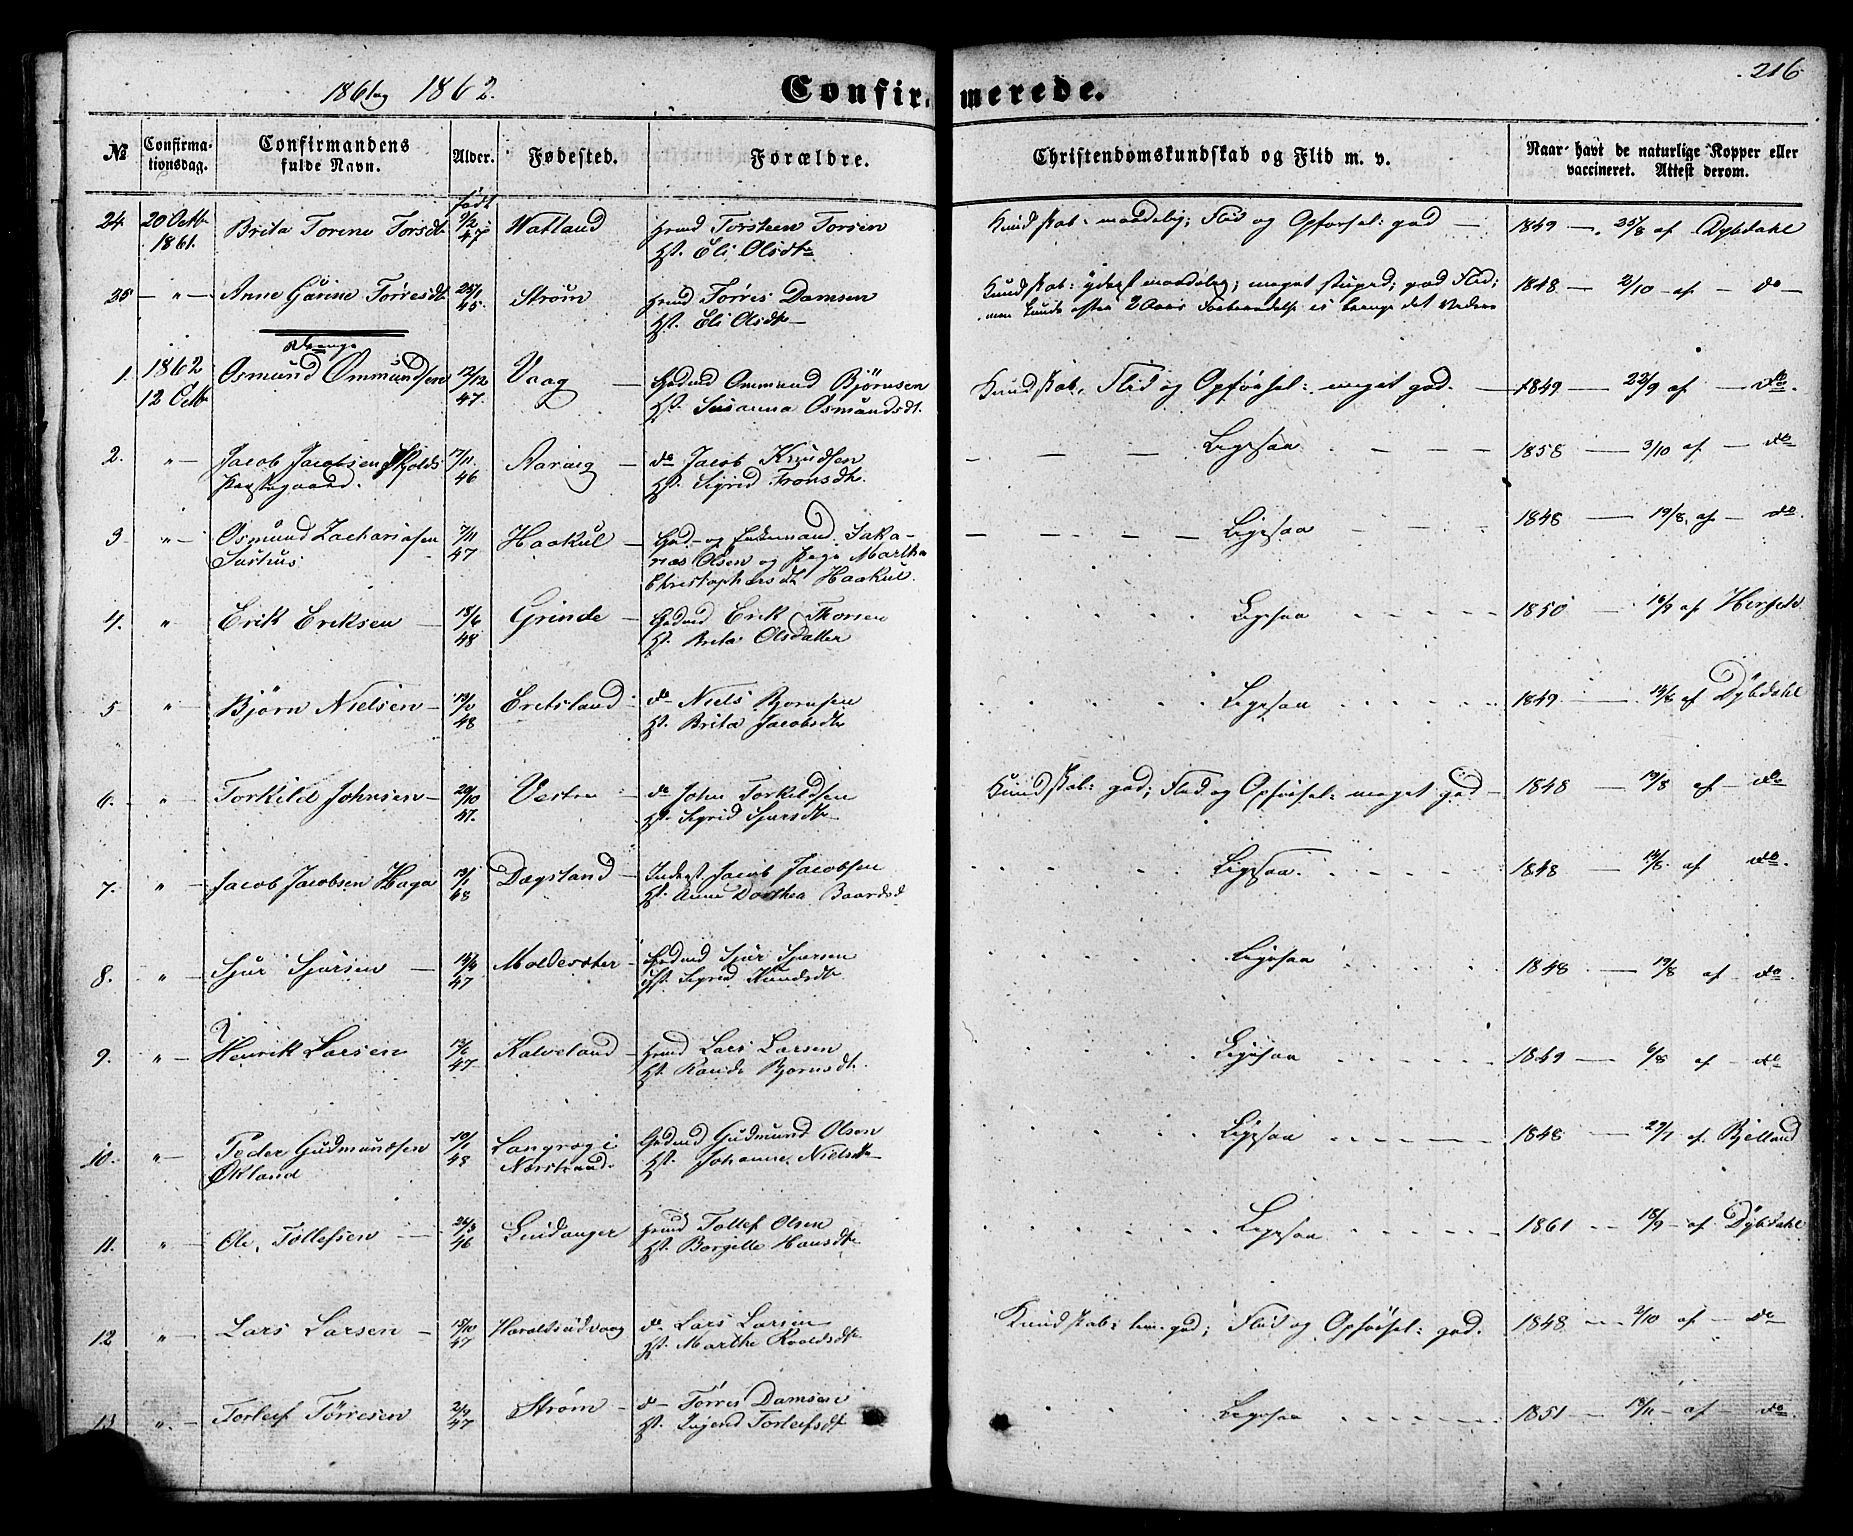 1861 og 1862.
Confirmerede.
216
No
Confirma-
tionsdag.
Confirmandens
fulde Navn.
Alder.
Fødested.
Forældre.
Christendomskundskab og Flid m. v.
Naar havt de naturlige Kopper eller
vaccineret. Attest derom.
født
24 20 Octb 1861. Brita Torine Torsdt 9/2 47 Watland
Torsteen Torsen
Eli Olsdtr
Kundskab: maadelig; Flid og Opførsel: god 1849 — 25/8 af Dybdahl
25 — " — Anne Gurine Tørresdt 25/1 45. Strøm
Tørres Damsen
Eli Olsdtr
Kundskab: yderst maadelig; meget stupid; god Flid;
1848 — 2/10 af — do —
Drenge
1. 1862 12 Octb Osmund Ommundsen 12/12 47. Vaag
Gbmd Ommund Bjørnsen
H. Susanna Osmundsdt.
Kundskab, Flid og Opførsel: meget god. — 1849 — 22/9 af — do.
2. " — Jacob Jacobsen Skjolds
Præstegaard. 17/11. 46 Aarvig
do Jacob Knudsen
H. Sigrid Tronsdtr.
Ligesaa 1858 — 3/10 af — do
3 " — Osmund Zachariasen 7/11 47 Haakul
Gbd- og Enkemand Saka-
rias Olsen og Pige Martha
Christophersdt Haakul.
Ligesaa 1848 — 19/8. af — do.
4. " Erik Eriksen 18/6 48 Grinde
Gbdmd Erik Thorsen
H. Brita Olsdatter
Ligesaa 1850 — 16/9 af
5 " — Bjørn Nielsen 48 Eretsland
do Niels Bjørnsen
H. Brita Jacobsdtr
Ligesaa 1849 — af Dybdahl
6. " Torkild Johnsen 20/10 47. Vestre
do John Torkildsen
H. Sigrid Sjursdtr
Kundskab: god; Flid og Opførsel: meget god — 1848 19/8 af — do
7. " — Jacob Jacobsen Haga 48 Dagsland
Inderst Jacob Jacobsen
H. Anne Dorthea Baardsd
Ligesaa. 1848 — 19/8. af do.
8. " Sjur Sjursen 47 Moldesæter
Gbdmd Sjur Sjursen
H. Sigrid Knudsdt.
Ligesaa 1848 — 19/8 af — do
9. " — Henrik Larsen 47 Kalveland
Lars Larsen
H. Rande Bjørnsdt.
Ligesaa 1849 — 6/8 af — do
10. " — Peder Gudmundsen
Økland 48 Langvæg i
Nærstrand
Gbdmd Gudmund Olsen
H. Johanne Nielsdtr
Ligesaa 1848 — 29/7 af Bjelland
11. " — Ole Tollefsen 26/3 46 Leidanger
Tollef Olsen
H. Borgille Hansdtr
Ligesaa 1861 18/9 — af Dybdahl
12 " — Lars Larsen 15/10 47 Haraldseidvaag
do Lars Larsen
H. Marthe Roaldsdtr
Kundskab: tem. god; Flid og Opførsel: god. 1848 2/10 af — do
13 " — Torleif Tørresen 2/9 47 Strøm
do Tørres Damsen
H. Torleifsdt
Ligesaa 1851 — 19/11 — af — do.